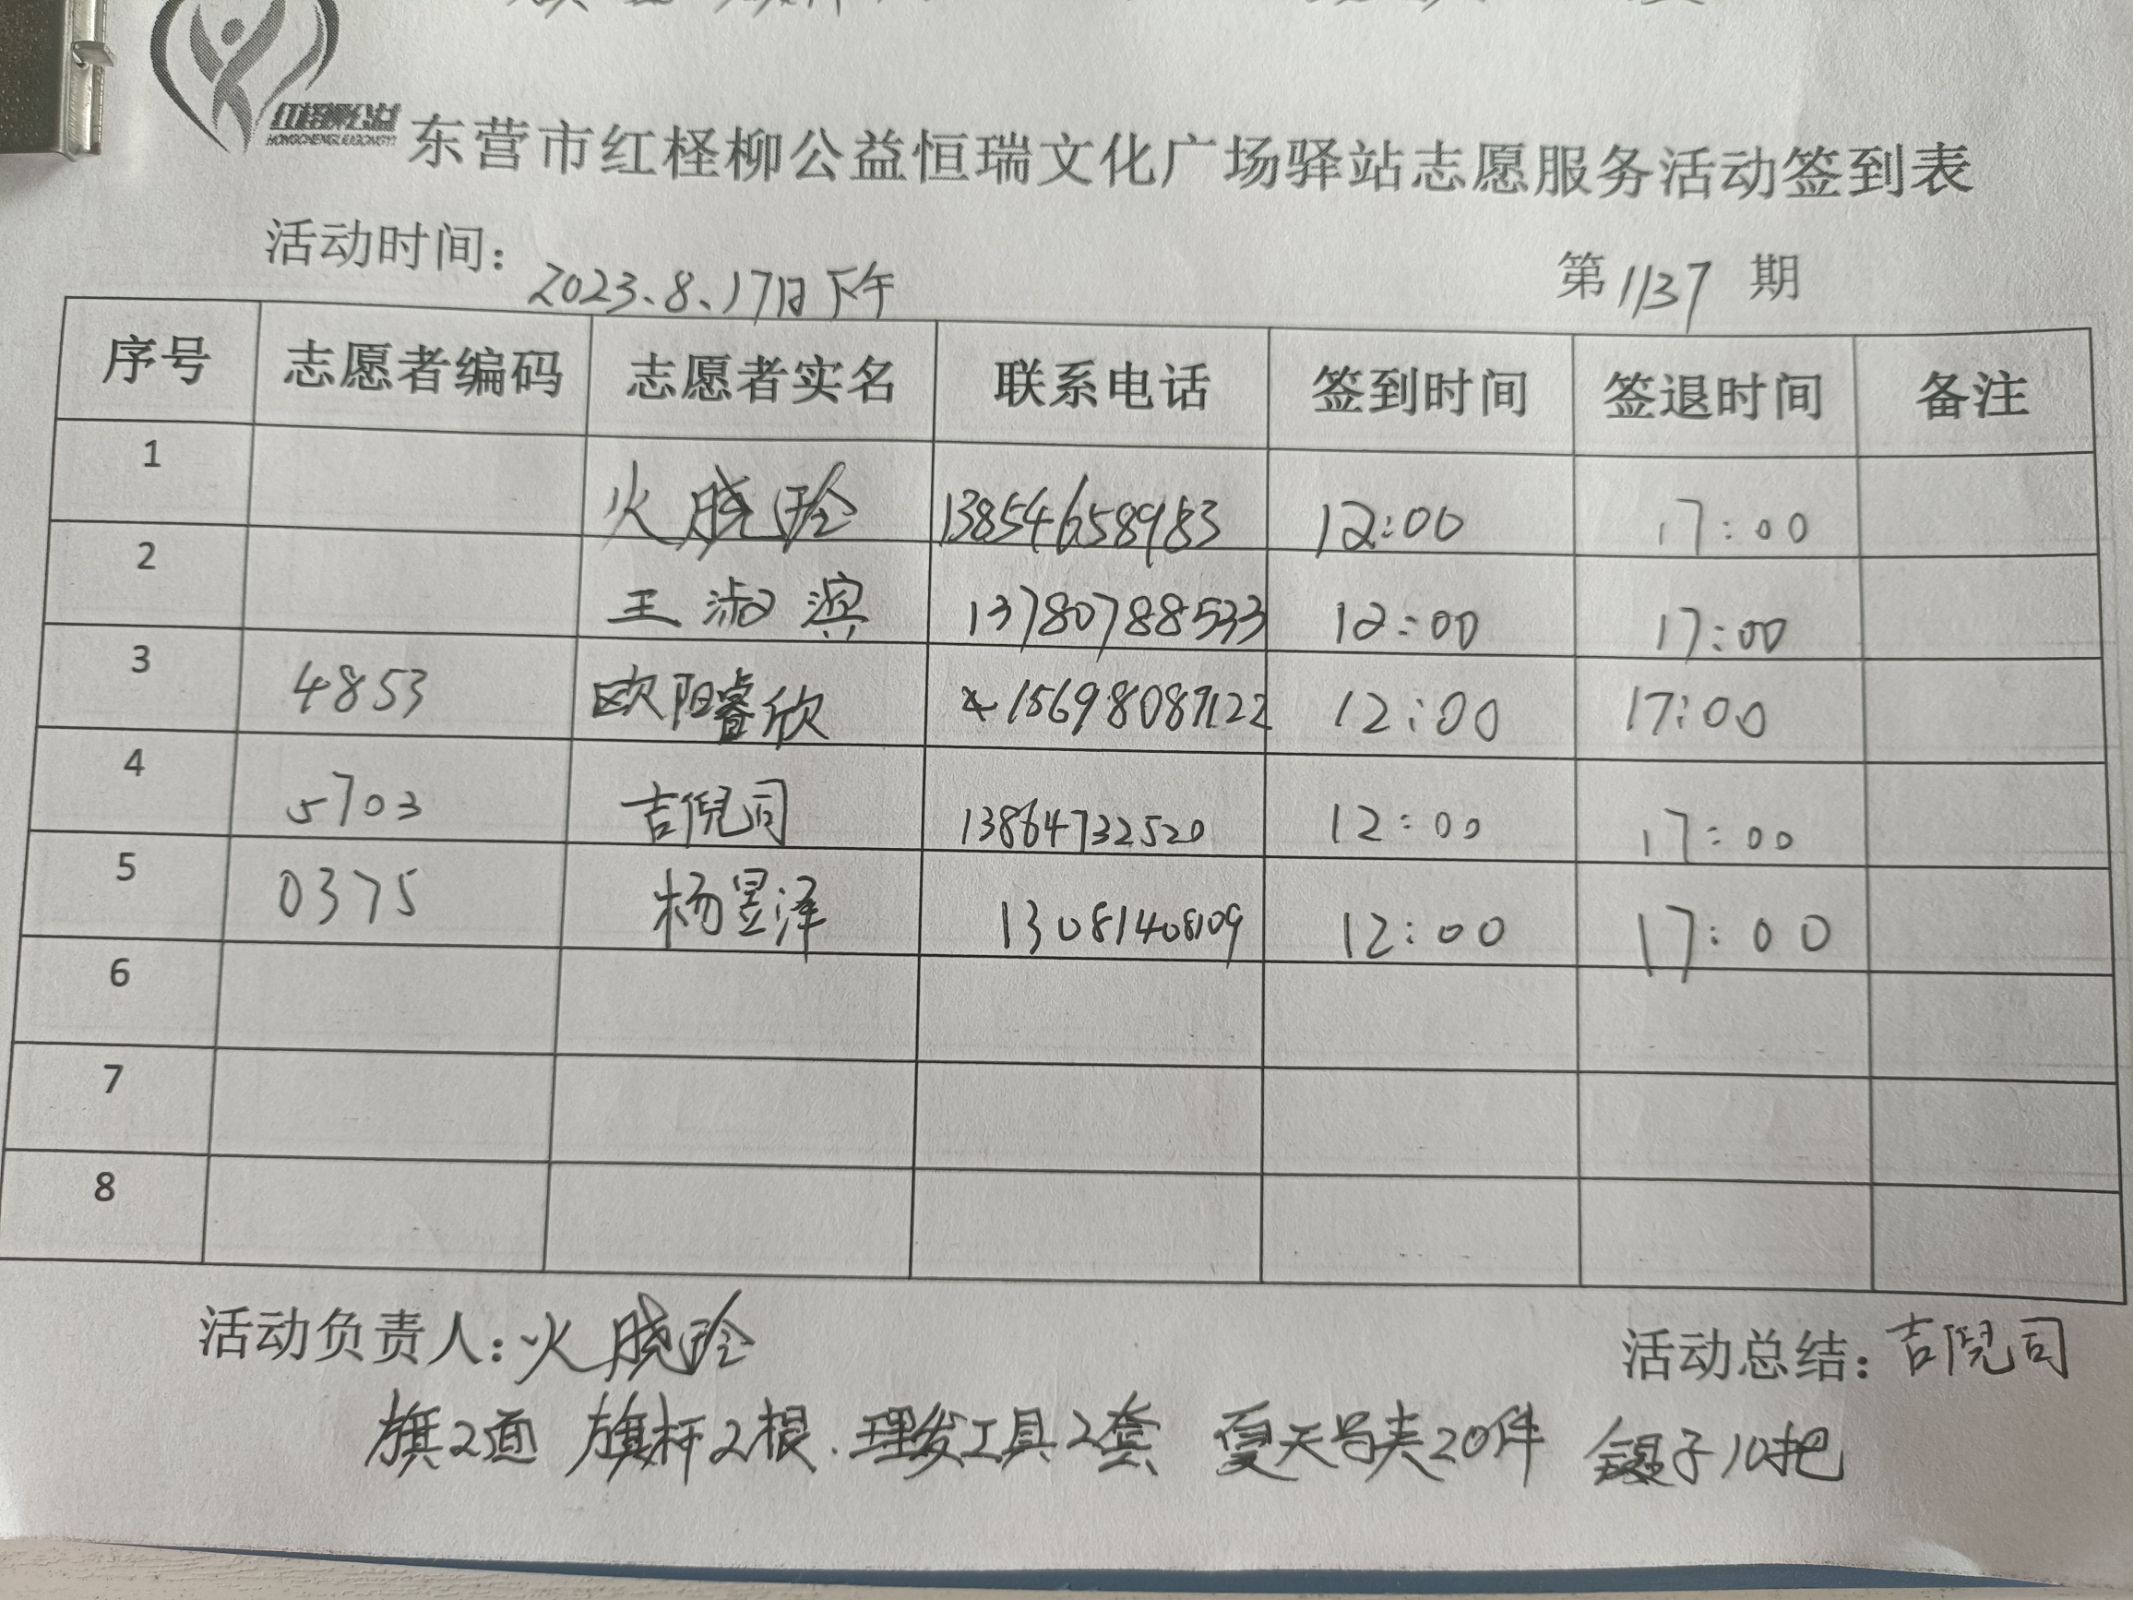 红柽柳公益
HONGCHENGLIUGONGYI
东营市红柽柳公益恒瑞文化广场驿站志愿服务活动签到表
活动时间：2023.8.17日下午 第1137期
序号 志愿者编码 志愿者实名 联系电话 签到时间 签退时间 备注
1 火晓玲 13854658983 12:00 17:00
2 王淑滨 13780788533 12:00 17:00
3 4853 欧阳睿欣 15698089122 12:00 17:00
4 5703 吉倪司 13864732520 12:00 17:00
5 0375 杨昱泽 13081408109 12:00 17:00
6
7
8
活动负责人：火晓玲 活动总结：吉倪司
旗2面 旗杆2根.理发工具2套 夏天马夹20件 镊子10把